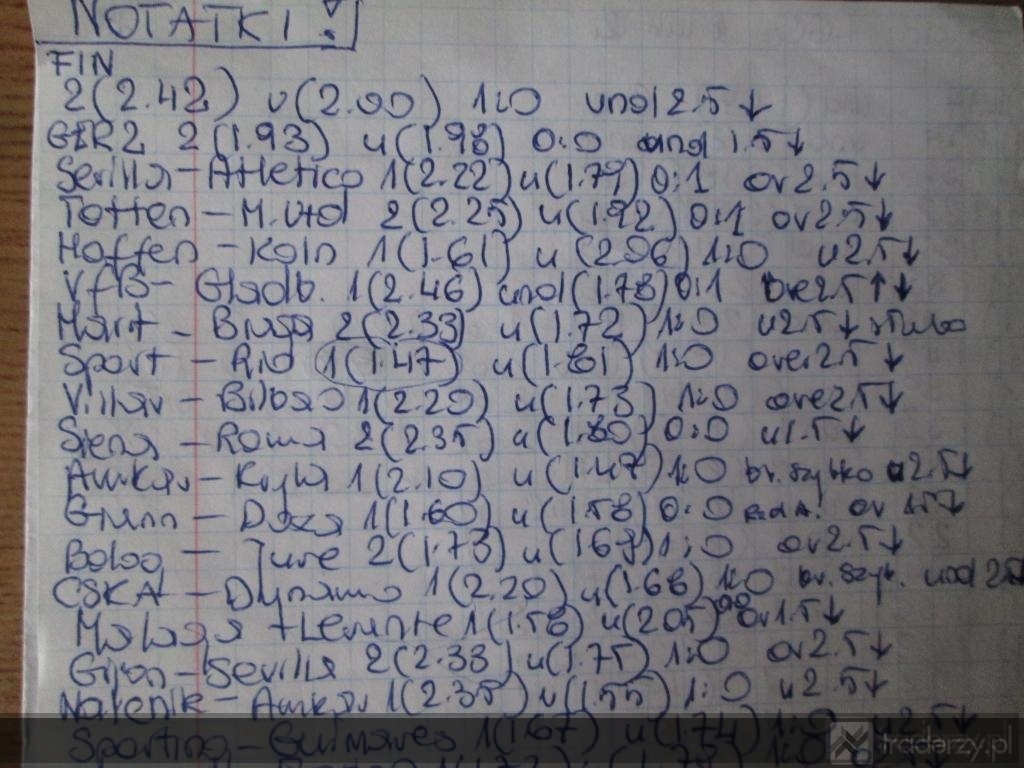 NOTATKI !
FIN
2(2.42) u(2.00) 1:0 und 2.5 ↓
GER2 2(1.93) u(1.98) 0:0 und 1.5↓
Sevilla-Atletico 1(2.22) u(1.79) 0:1 ov 2.5↓
Totten - M.Utd 2(2.25) u(1.92) 0:1 ov 2.5↓
Hoffen - Koln 1(1.61) u(2.06) 1:0 u2.5↓
VfB- Gladb. 1(2.46) und(1.78) 0:1 ove2.5↑↓
Marit - Braga 2(2.33) u(1.72) 1:0 u2.5↓
Sport - Rio 1(1.47) u(1.81) 1:0 over2.5 ↓
Villar - Bilbao 1(2.20) u(1.73) 1:0 ove2.5↓
Siena - Roma 2(2.35) u(1.80) 0:0 u1.5↓
Amkar - Kryla 1(2.10) u(1.47) 1:0 br. szybko u2.5↓
1(1.60) u(1.58) 0:0 ov 1.5↓
Bolog - Juve 2(1.73) u(1.69) 1:0 ov2.5↓
CSKA - Dynamo 1(2.20) u(1.68) 1:0 br. szyb. und 2.5
Malaga + Levante 1(1.58) u(2.05) 0:0 ov1.5↓
Gijon-Sevilla 2(2.33) u(1.75) 1:0 ov2.5↓
Nalcnik - Amkar 1(2.35) u(1.55) 1:0 u2.5↓
Sporting-Guimares 1(1.67) u(1.74) 1:0 u2.5↓
traderzy.pl